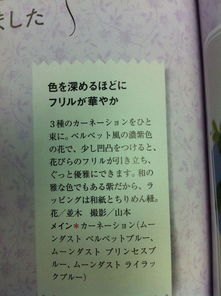 ました
色を深めるほどに
フリルが華やか
3種のカーネーションをひと
束に。ベルベット風の濃紫色
の花で、少し凹凸をつけると、
花びらのフリルが引き立ち、
ぐっと優雅にできます。和の
雅な色でもある紫だから、ラ
ッピングは和紙とちりめん紐。
花／並木 撮影／山本
メイン＊カーネーション(ムー
ンダスト ベルベットブルー、
ムーンダスト プリンセスブ
ルー、ムーンダスト ライラッ
クブルー)